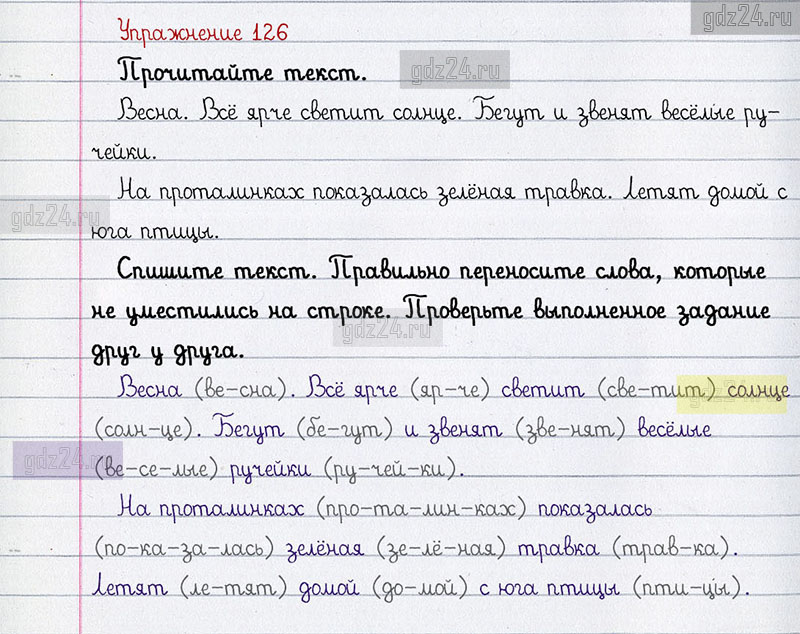 gdz24.ru
Упражнение 126
Прочитайте текст.
gdz24.ru
Весна. Всё ярче светит солнце. Бегут и звенят весёлые ру-
чейки.
На проталинках показалась зелёная травка. Летят домой с
gdz24.ru
юга птицы.
Спишите текст. Правильно переносите слова, которые
не уместились на строке. Проверьте выполненное задание
gdz24.ru
друг у друга.
Весна (ве-сна). Всё ярче (яр-че) светит (све-тит) солнце
gdz24.ru
(солн-це). Бегут (бе-гут) и звенят (зве-нят) весёлые
gdz24.ru
(ве-се-лые) ручейки (ру-чей-ки).
На проталинках (про-та-лин-ках) показалась
(по-ка-за-лась) зелёная (зе-лё-ная) травка (трав-ка).
Летят (ле-тят) домой (до-мой) с юга птицы (пти-цы).